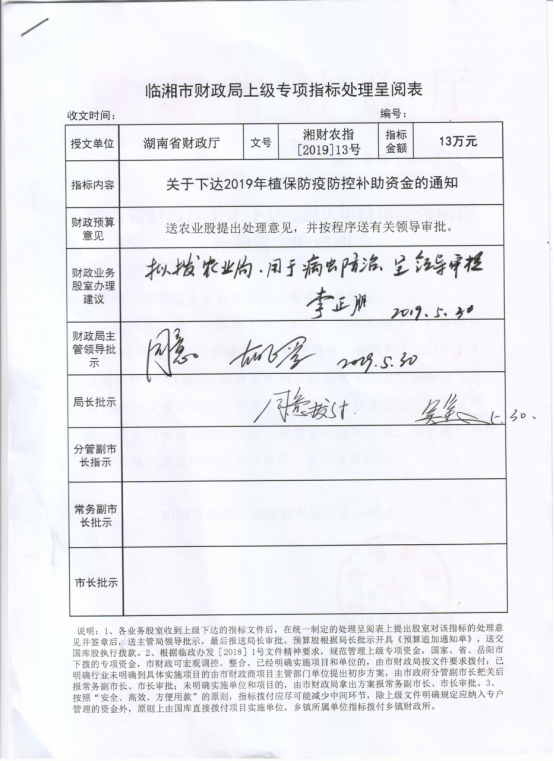 临湘市财政局上级专项指标处理呈阅表
收文时间： 编号：
授文单位 湖南省财政厅 文号 湘财农指[2019]13号 指标金额 13万元
指标内容 关于下达2019年植保防疫防控补助资金的通知
财政预算意见 送农业股提出处理意见，并按程序送有关领导审批。
财政业务股室办理建议 拟拨农业局，用于病虫防治，呈领导审批
李正朋 2019.5.30
财政局主管领导批示 同意 2019.5.30
局长批示 同意拨付. 5.30.
分管副市长指示
常务副市长批示
市长批示
说明：1、各业务股室收到上级下达的指标文件后，在统一制定的处理呈阅表上提出股室对该指标的处理意
见并签章后，送主管局领导批示，最后报送局长审批，预算股根据局长批示开具《预算追加通知单》，送交
国库股执行拨款。2、根据临政办发［2018］1号文件精神要求，规范管理上级专项资金，国家、省、岳阳市
下拨的专项资金，市财政可宏观调控、整合，已经明确实施项目和单位的，由市财政局按文件要求拨付；已
明确行业未明确到具体实施项目的由市财政商项目主管部门单位提出初步方案，由市政府分管副市长把关后
报常务副市长、市长审批；未明确实施单位和项目的，由市财政局拿出方案报常务副市长、市长审批。3、
按照“安全、高效、方便用款”的原则，指标拨付应尽可能减少中间环节，除上级文件明确规定应纳入专户
管理的资金外，原则上由国库直接拨付项目实施单位，乡镇所属单位指标拨付乡镇财政所。